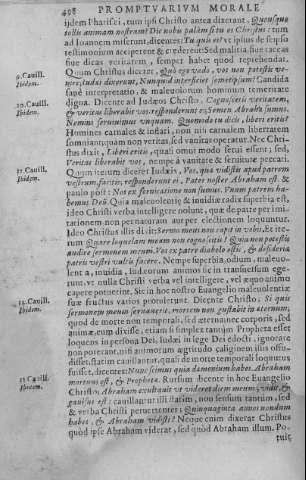 498 PROMPTVARIVM MORALE
ijdem Pharisæi, tum ipsi Christo antea dixerant, Quousque
tollis animam nostram? Dic nobis palàm si tu es Christus: tum
ad Ioannem miserunt, dicentes: Tu quis es? vt ipsius de seipso
testimonium acciperent & crederent: Sed malitia, siue taceas
siue dicas veritatem, semper habet quod reprehendat.
9. Cauill. Quum Christus diceret, Quò ego vado, vos non potestis ve-
Ibidem. nire, Iudæi dicerunt, Nunquid interficiet semetipsum? Candida
sanè interpretatio, & maleuolorum hominum temeritate
10. Cauill. digna. Dicente ad Iudæos Christo, Cognoscetis veritatem,
Ibidem. & veritas liberabit vos, responderunt ei: Semen Abrahæ sumus,
Nemini seruiuimus vnquam. Quomodo tu dicis, liberi eritis?
Homines carnales & inflati, non nisi carnalem libertatem
somniant: quàm non veritas, sed vanitas operatur. Nec Chri-
stus dixit, Liberi eritis, quasi omni modo serui essent; sed,
Veritas liberabit vos, nempè à vanitate & seruitute peccati.
11. Cauill. Quum item diceret Iudæis, Vos, quæ vidistis apud patrem
Ibidem. vestrum facitis, responderunt ei, Pater noster Abraham est. &
paulò pòst: Nos ex fornicatione non sumus. Vnum patrem ha-
bemus Deū. Quia maleuolentię & inuidiæ radix superbia est,
ideo Christi verba intelligere nolunt, quæ de patre per imi-
tationem non per naturam aut per electionem loquuntur.
Ideo Christus illis dicit: Sermo meus non capit in vobis, Et ite-
rum, Quare loquelam meam non cognoscitis? Quia non potestis
audire sermonem meum. Vos ex patre diabolo estis, & desideria
patris vestri vultis facere. Nempe superbia, odium, maleuo-
lentia, inuidia, Iudæorum animos sic in transuersum ege-
runt, vt nulla Christi verba vel intelligere, vel æquo animo
capere potuerint. Sic in hoc nostro Euangelio maleuolentiæ
12. Cauill. suæ fructus varios promulerunt. Dicente Christo, Si quis
Ibidem. sermonem meum seruauerit, mortem non gustabit in æternum,
quod de morte non temporali, sed æterna, nec corporis, sed
animæ, eum dixisse, etiam si simplex tantùm Propheta esset
loquens in persona Dei, Iudæi in lege Dei docti, ignorare
non poterant, nisi animorum agritudo caliginem illis offu-
disset, statim cauillantur, quasi de morte temporali loquutus
fuisset, dicentes: Nunc scimus quia dæmonium habes. Abraham
13. Cauill. mortuus est, & Prophetæ. Rursum dicente in hoc Euangelio
Ibidem. Christo, Abraham exultauit vt videret diem meum, vidit, &
gauisus est: cauillantur illi statim, non sensum tantùm, sed
& verba Christi peruertentes: Quinquaginta annos nondum
habes, & Abraham vidisti? Neque enim dixerat Christus
quòd ipse Abraham viderat, sed quòd Abraham illum. Po-
tuis